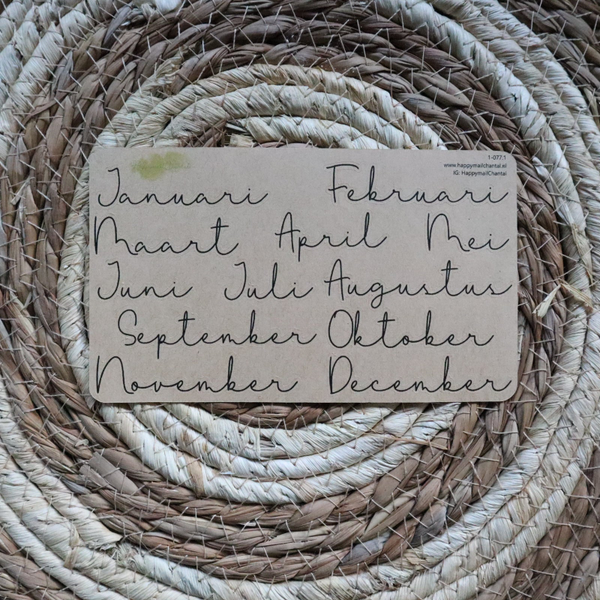 1-077.1
www.happymailchantal.nl
IG: HappymailChantal
Januari Februari
Maart April Mei
Juni Juli Augustus
September Oktober
November December